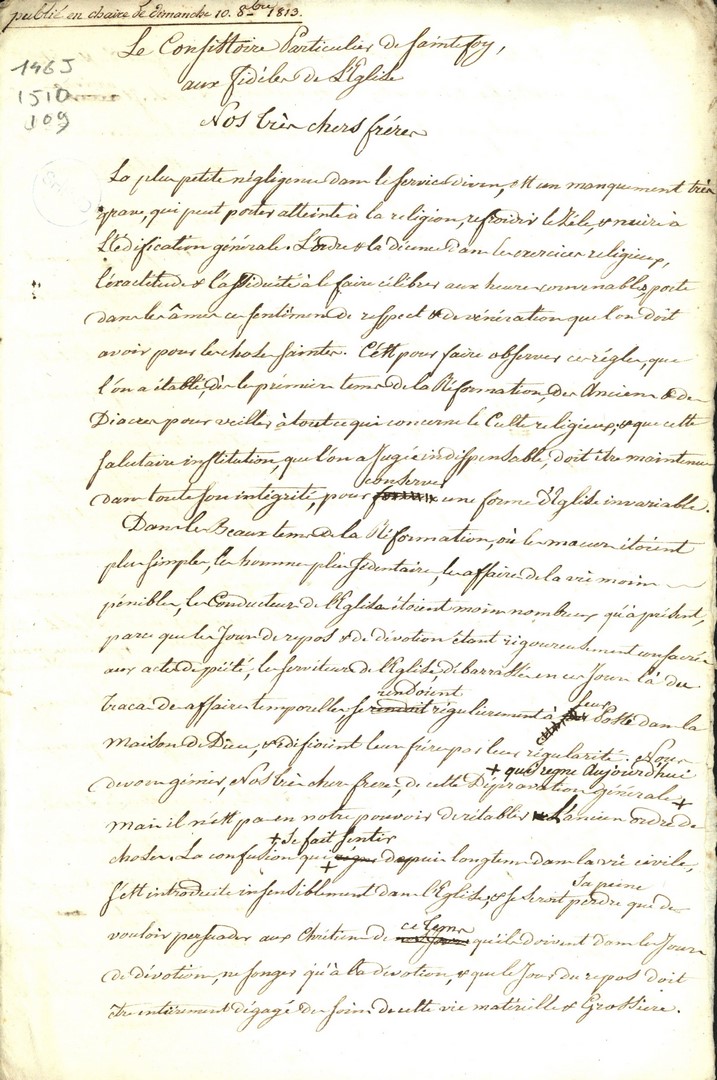 publié en chaire le dimanche 10. 8bre 1813.
Le Consistoire Particulier de Saintefoy,
aux fidéles de l'Eglise
1465
1510
109
Nos très chers fréres
La plus petite négligence dans le service divin, est un manquement très
grave, qui peut porter atteinte à la religion, refroidir le Zéle & nuire à
L'édification générale. L'ordre & la décence dans les exercices religieux,
l'exactitude & l'assiduité à le faire célébrer aux heures convenables, porte
dans les âmes ces sentimens de respect & de vénération que l'on doit
avoir pour les choses saintes. C'est pour faire observer ces régles, que
l'on a établi, dès les prémiers tems de la Réformation, des Anciens & des
Diacres pour veiller à tout ce qui concerne le Culte religieux, & que cette
salutaire institution, que l'on a jugée indispensable, doit être maintenue
conserver
dans toute son intégrité, pour une forme d'Eglise invariable.
Dans les Beaux tems de la Réformation, où les mœurs étoient
plus simples, les hommes plus sédentaires, les affaires de la vie moins
pénibles, les Conducteurs de l'Eglise étoient moins nombreux qu'à présent,
parce que les Jours de repos & de dévotion étant rigoureusement consacrés
aux actes de piété, les serviteurs de l'Eglise débarrassés en ces Jours là du
rendoient
tracas des affaires temporelles, se rendoit régulièrement à leur Poste dans la
Maison de Dieu, & édifioient leurs fréres par leur régularité. Nous
+ qui régne aujourd'hui
devons gémir, Nos très chers freres, de cette Dépravation générale +
mais il n'est pas en notre pouvoir de rétablir L'ancien ordre de
+ se fait sentir
choses. La confusion qui régne depuis longtems dans la vie civile,
+
s'est introduite insensiblement dans l'Eglise, & ce seroit perdre sa peine que de
ce tems
vouloir persuader aux Chrétiens de qu'ils doivent dans les Jours
de dévotion, ne songer qu'à la dévotion, & que le Jour du repos doit
être entiérement dégagé des soins de cette vie matérielle & Grossiere.